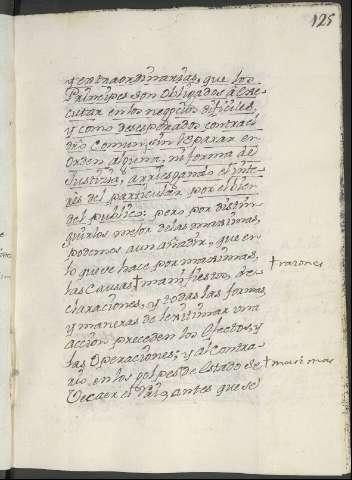 125
y extraordinarias, que los
Principes son Obligados à Exe-
cutar en los negocios dificiles,
y como desesperados contra el
dro comun, sin reparar en
Orden alguna, ni forma de
Justicia, arriesgando el inte-
rès del particular por el bien
del publico: pero por distin-
guirlos mejor de las maximas,
podemos aun añadir, que en
lo que se hace por maximas,
las Causas † manifiestos, de-
claraciones, y todas las formas
y maneras de legitimar una
accion preceden los efectos, y
las Operaciones; y al Contra-
rio, en los golpes de Estado se †
antes que se
† razones